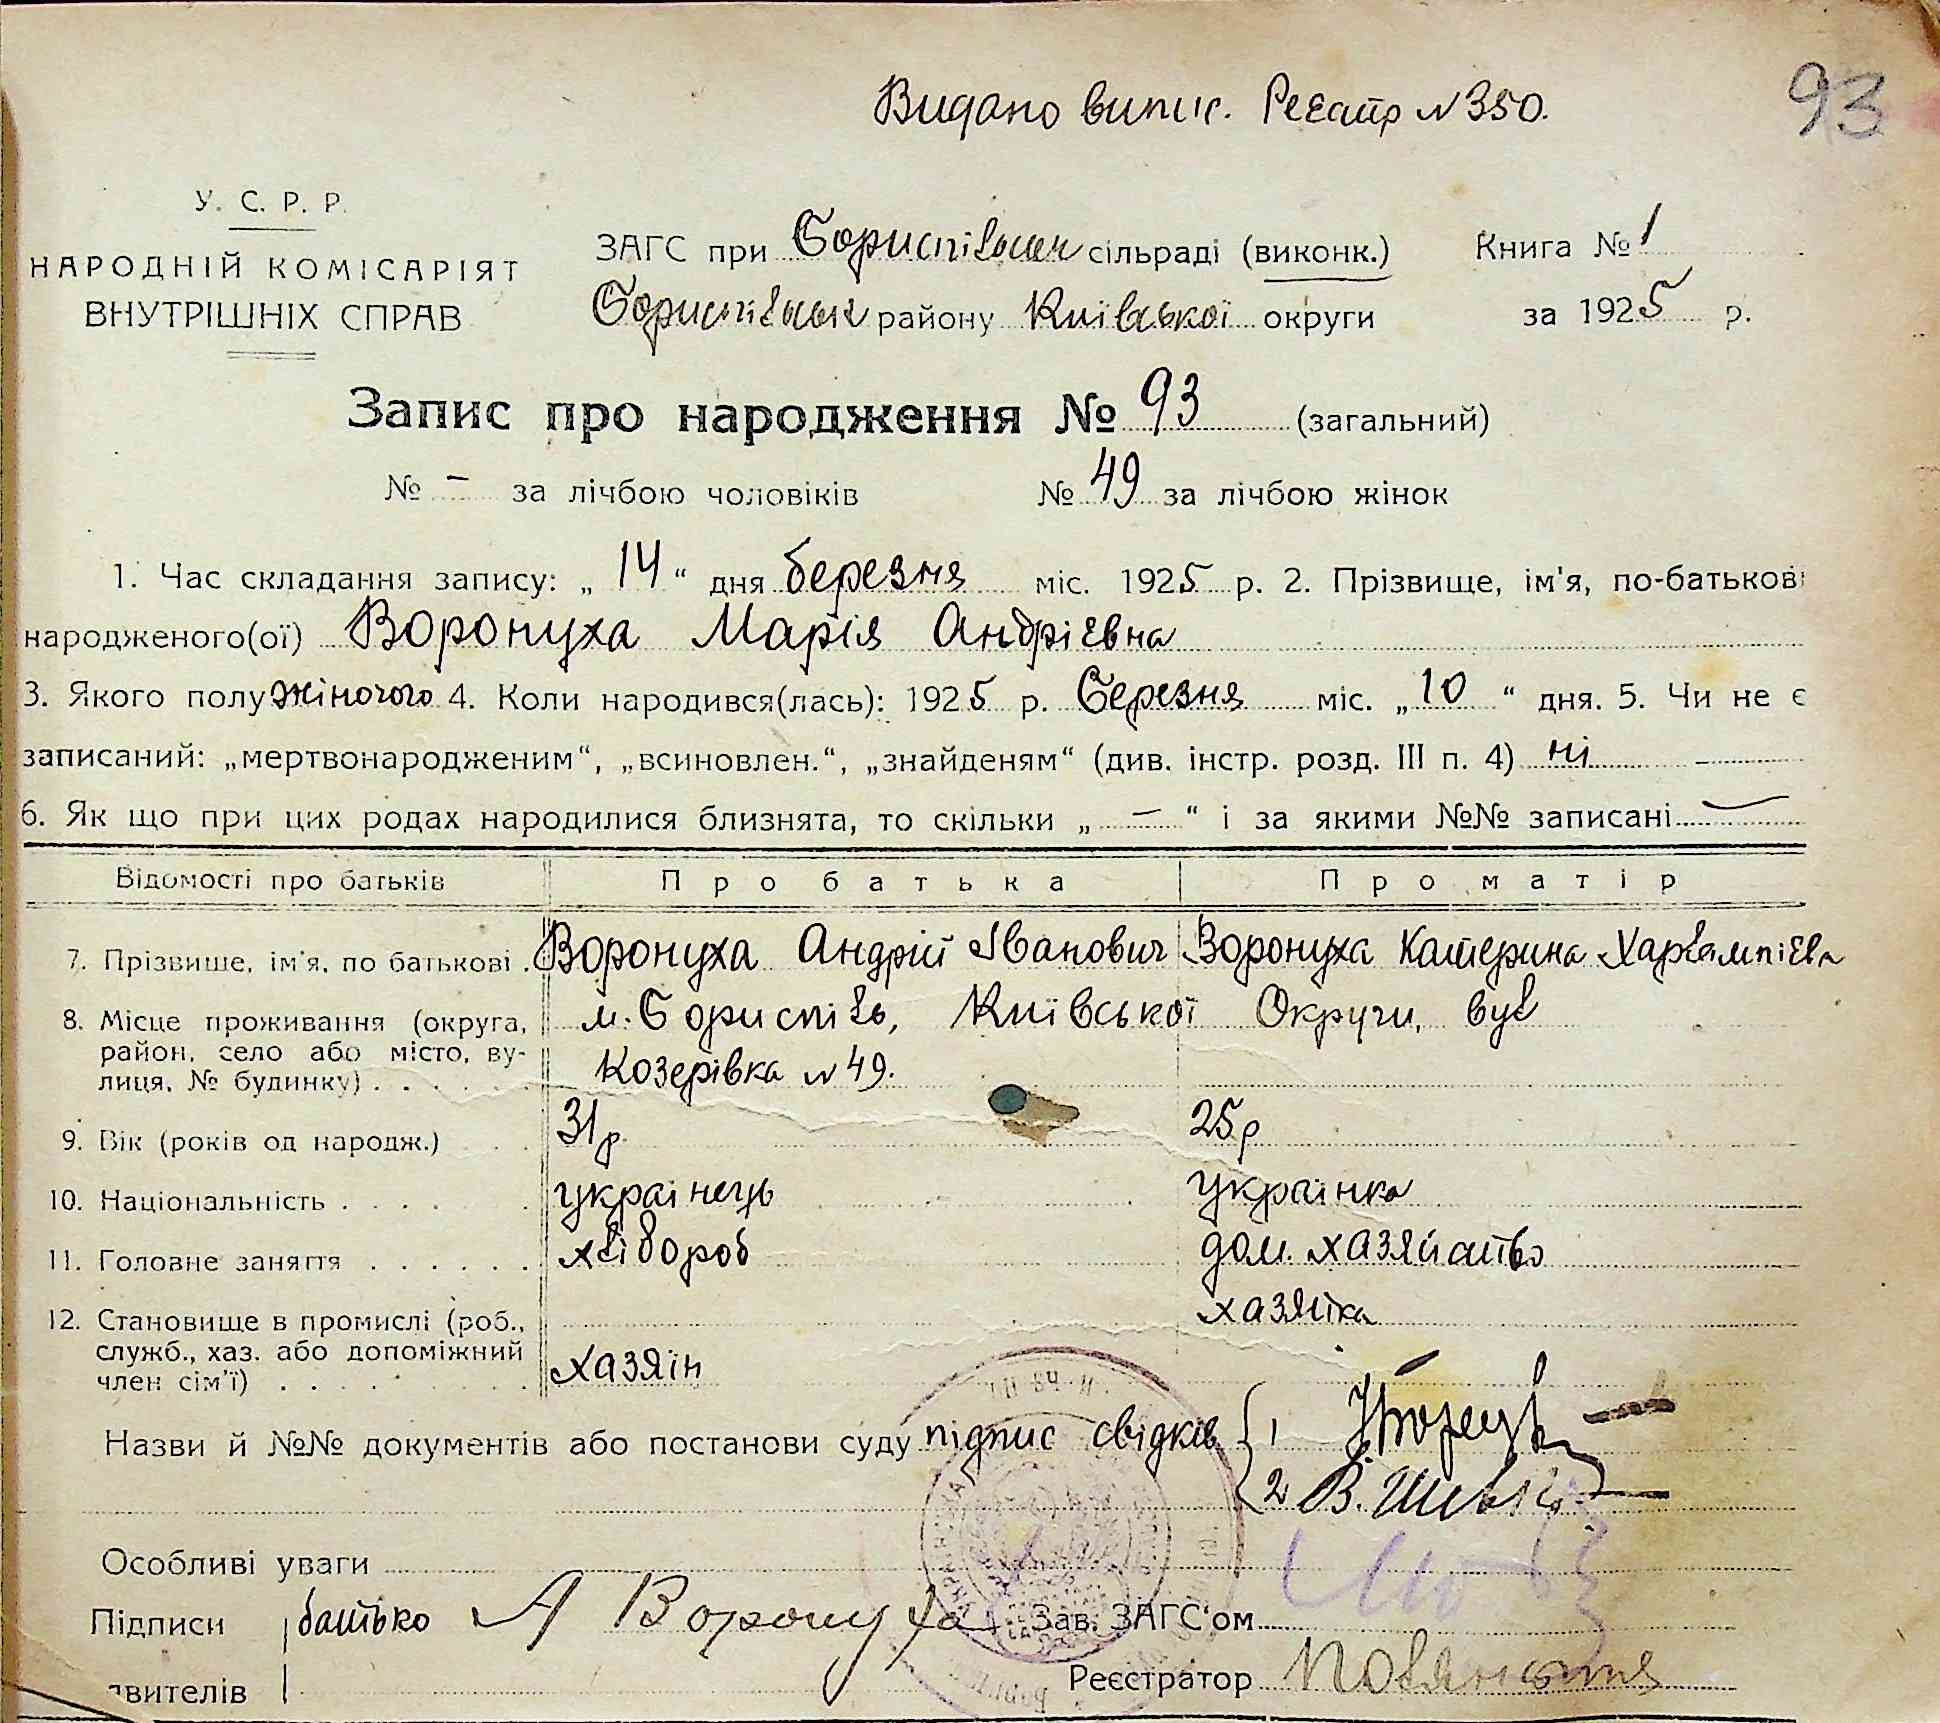 Видано випис. Реєстр №350.
93
У. С. Р. Р.
НАРОДНІЙ КОМІСАРІЯТ
ВНУТРІШНІХ СПРАВ
ЗАГС при Бориспільськ сільраді (виконк.) Книга № 1
Бориспільськ району Київської округи за 1925 р.
Запис про народження № 93 (загальний)
№ - за лічбою чоловіків № 49 за лічбою жінок
1. Час складання запису: „ 14 “ дня березня міс. 1925 р. 2. Прізвище, ім'я, по-батькові
народженого(ої) Воронуха Марія Андрієвна
3. Якого полу жіночого 4. Коли народився(лась): 1925 р. Березня міс. „ 10 “ дня. 5. Чи не є
записаний: „мертвонародженим“, „всиновлен.“, „знайденям“ (див. інстр. розд. III п. 4) ні
6. Як що при цих родах народилися близнята, то скільки „ — “ і за якими №№ записані —
Відомості про батьків Про батька Про матір
7. Прізвище, ім'я, по батькові . Воронуха Андрій Іванович Воронуха Катерина Харлампієва
8. Місце проживання (округа, м. Бориспіль, Київської Округи, вул
район, село або місто, ву-
лиця, № будинку) . . . . . . Козерівка №49.
9. Вік (років од народж.) . . . 31р 25р
10. Національність . . . . . українець українка
11. Головне заняття . . . . . . хлібороб дом. хазяйство
12. Становище в промислі (роб., хазяйка
служб., хаз. або допоміжний
член сім'ї) . . . . . . . . хазяїн
Назви й №№ документів або постанови суду підпис свідків { 1
2 В.
Особливі уваги
Підписи батько А Воронуха Зав. ЗАГС'ом
явителів Реєстратор